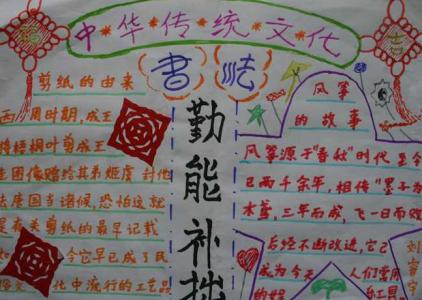 福
中华传统文化
吉
書法
剪纸的由来
西周时期,成王
将梧桐叶剪成王
圭图像赠给其弟姬虞 封他
去唐国当诸侯,恐怕这就
是有关剪纸的最早记载
今它早已成了民
化中流行的工艺品
勤能补拙
风筝
的故事
风筝源于"春秋"时代 至今
已两千余年,相传"墨子为
木鸢,三年而成,飞一日而败
后经不断改进,它已
成为今天 人们常用
的娱
刘睿宁